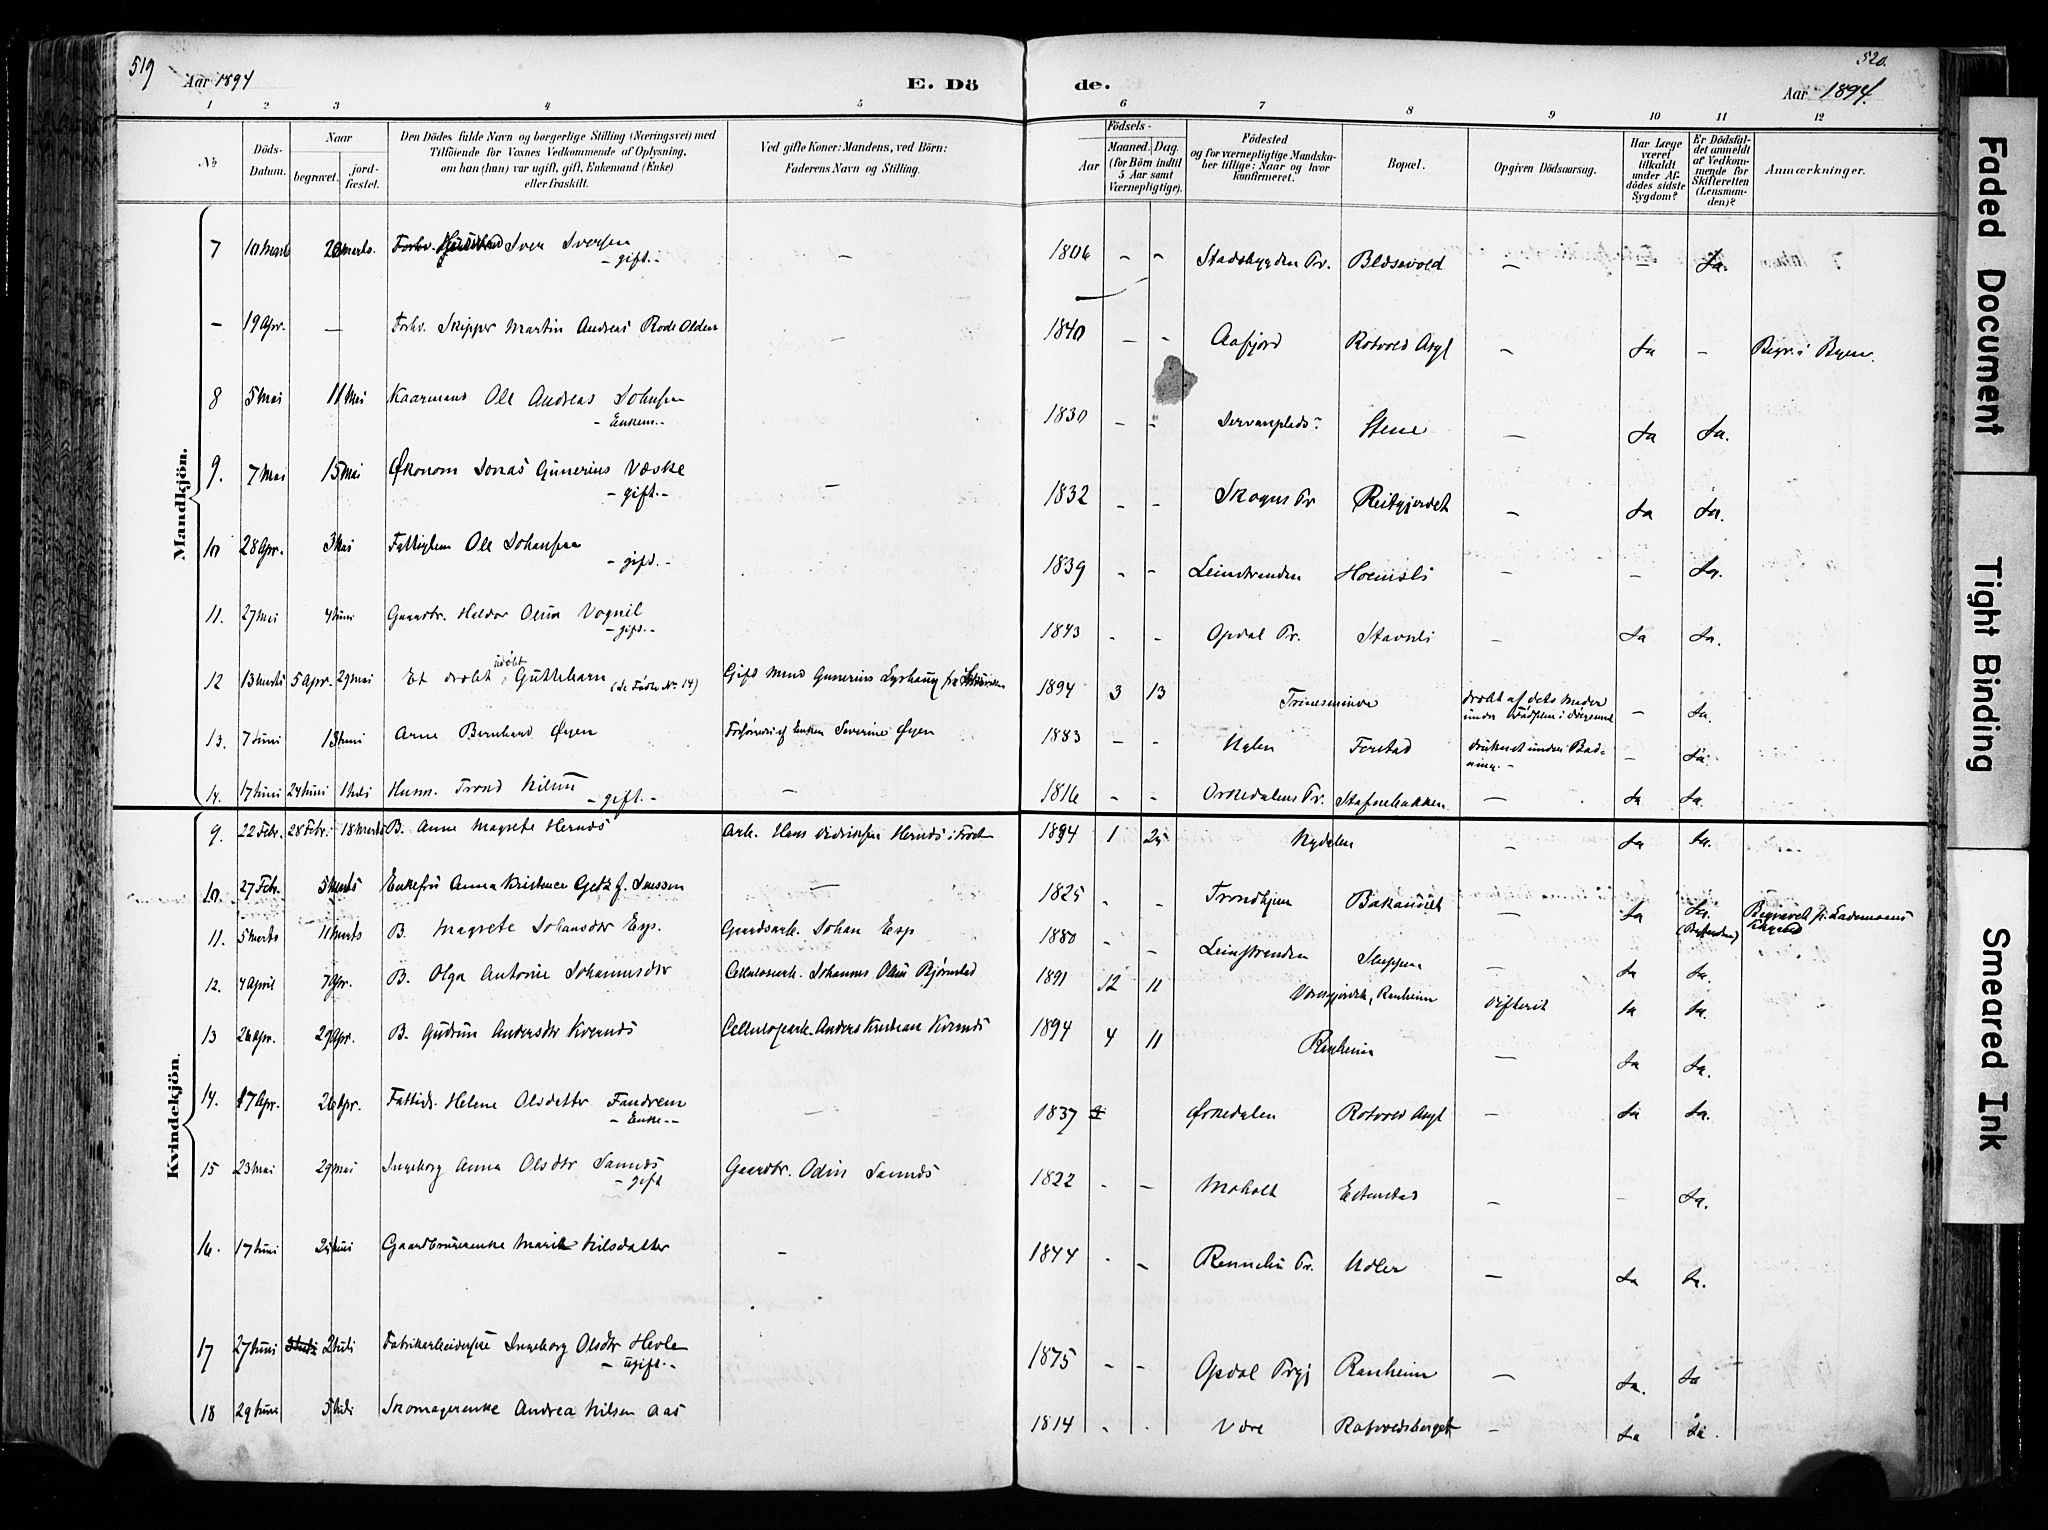 519
Aar 1894
E. Dö
de.
520.
Aar 1894.
1 2 3 4 5 6 7 8 9 10 11 12
№
Döds-Datum.
Naar
begravet.
jord-fæstet.
Den Dödes fulde Navn og borgerlige Stilling (Næringsvei) med
Tilföiende for Voxnes Vedkommende af Oplysning,
om han (hun) var ugift, gift, Enkemand (Enke)
eller fraskilt.
Ved gifte Koner: Mandens, ved Börn:
Faderens Navn og Stilling.
Födsels-
Aar
Maaned. Dag.
(for Börn indtil
5 Aar samt
Værnepligtige).
Födested
og for værnepligtige Mandska-
ber tillige: Naar og hvor
konfirmeret.
Bopæl.
Opgiven Dödsaarsag.
Har Læge
været
tilkaldt
under Af-
dödes sidste
Sygdom?
Er Dödsfal-
det anmeldt
af Vedkom-
mende for
Skifteretten
(Lensman-
den)?
Anmærkninger.
Mandkjön.
7 10 Marts 20 Marts. Forhv. Iver Iversen - gift. - — 1806 - - Stadsbygden Pr. Blæsevold — — Ja.
— 19 Apr. — Forhv. Skipper Martin Andreas Rode Olden — 1840 - - Aafjord Rotvold Asyl — Ja — Begr. i Byen.
8 5 Mai 11 Mai Kaarmand Ole Andreas Johnsen - Enkem. - 1830 - - Stene — Ja Ja.
9. 7 Mai 15 Mai Økonom Jonas Gunerius Væske - gift. - — 1832 - - Skogns Pr Reitgjerdet — Ja Ja.
10 28 Apr. 3 Mai Fattiglem Ole Johansen - gift. - 1839 - - Leinstranden Hoemsli — — Ja.
11. 27 Mai 4 Juni Gaardbr. Haldor Olsen Vognil - gift. - 1843 - - Opdal Pr. Stavsli — Ja Ja.
12 13 Marts 5 Apr. 29 Mai Et dræbt, udøbt Guttebarn (se Fødte No 14) Gift Mand Gunerius Lyshaug fra 1894 3 13 Trinesminde dræbt af dets Moder under Fødselen i — Ja.
13. 7 Juni 13 Juni Arne Bernhard Øyen Enken Severine Øyen 1883 - - Ualen Forstad druknet under Bad-ning. - — Ja.
14. 17 Juni 24 Juni 1 Juli Husm. Trond Nilsen - gift. - — 1816 - - Orkedalens Pr. Stafnebakken — Ja Ja.
Kvindekjön.
9. 22 Febr. 28 Febr. 18 Marts B. Anne Magrete Hernæs Arb. Hans Didriksen Hernæs i 1894 1 25 Nydalen — Ja Ja.
10. 27 Febr. 5 Marts Enkefru Anna Kristence Getz f. Janssen — 1825 - - Trondhjem Bakaunet — Ja Ja. Begravet på Lademoens
11. 5 Marts 11 Marts B. Magrete Johansdtr Esp. Gaardsarb. Johan Esp 1880 - - Leinstranden Sluppen — Ja Ja.
12. 4 April 7 Apr. B. Olga Antonie Johannesdtr Cellulosearb. Johannes Olsen Bjørnstad 1891 12 11 Ranheim Difterit Ja Ja.
13 26 Apr. 29 Apr. B. Gudrun Andersdtr Kvernæs Cellulosearb. Anders Kristian Kvernæs 1894 4 11 Ranheim — Ja Ja.
14. 17 Apr. 26 Apr. Fattigl. Helene Olsdatter Fandrem - Enke - - — 1837 Orkedalen Rotvold Asyl — Ja Ja.
15 23 Mai 29 Mai Ingeborg Anna Olsdtr Sannæs - gift Gaardbr. Odin Sannæs 1822 - - Moholt Estenstad — - Ja.
16. 17 Juni 24 Juni Gaardbrugerenke Marit Nilsdatter — 1844 - - Rennebu Pr. Udler — Ja Ja.
17 27 Juni 2 Juli Fabrikarbeiderske Ingeborg Olsdtr Hevle - ugift. - 1875 - - Opdal Prgj Ranheim — Ja. Ja
18 29 Juni 5 Juli Skomagerenke Andrea Nilsen Aas 1814 - - Være Rotvoldsberget — Ja Ja.
Faded Document
Tight Binding
Smeared Ink